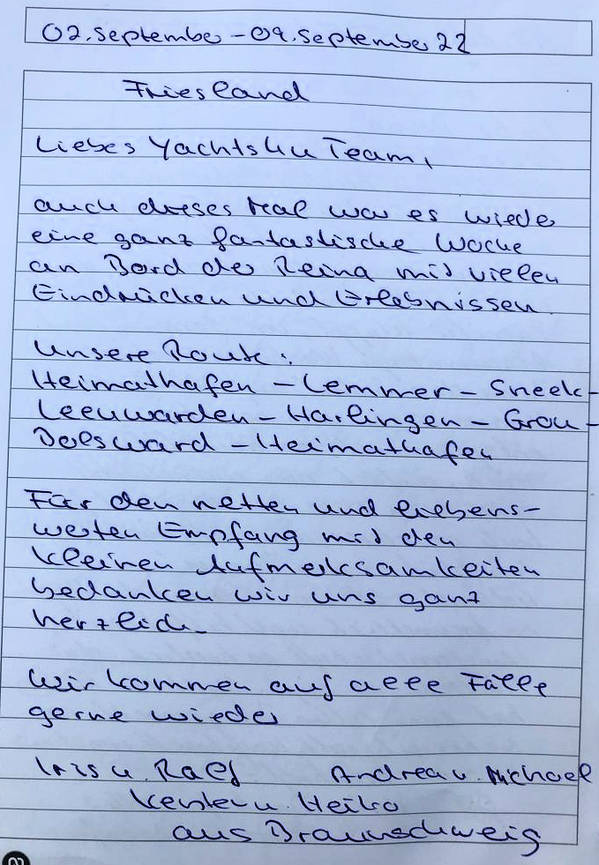 02. September – 09. September 22
Friesland
Liebes Yachtsku Team,
auch dieses Mal war es wieder
eine ganz fantastische Woche
an Bord der Reina mit vielen
Eindrücken und Erlebnissen.
Unsere Route:
Heimathafen – Lemmer – Sneek –
Leeuwarden – Harlingen – Grou –
Bolsward – Heimathafen
Für den netten und liebens-
werten Empfang mit den
kleinen Aufmerksamkeiten
bedanken wir uns ganz
herzlich.
Wir kommen auf alle Fälle
gerne wieder
Iris u. Ralf Andrea u. Michael
u. Heiko
aus Braunschweig